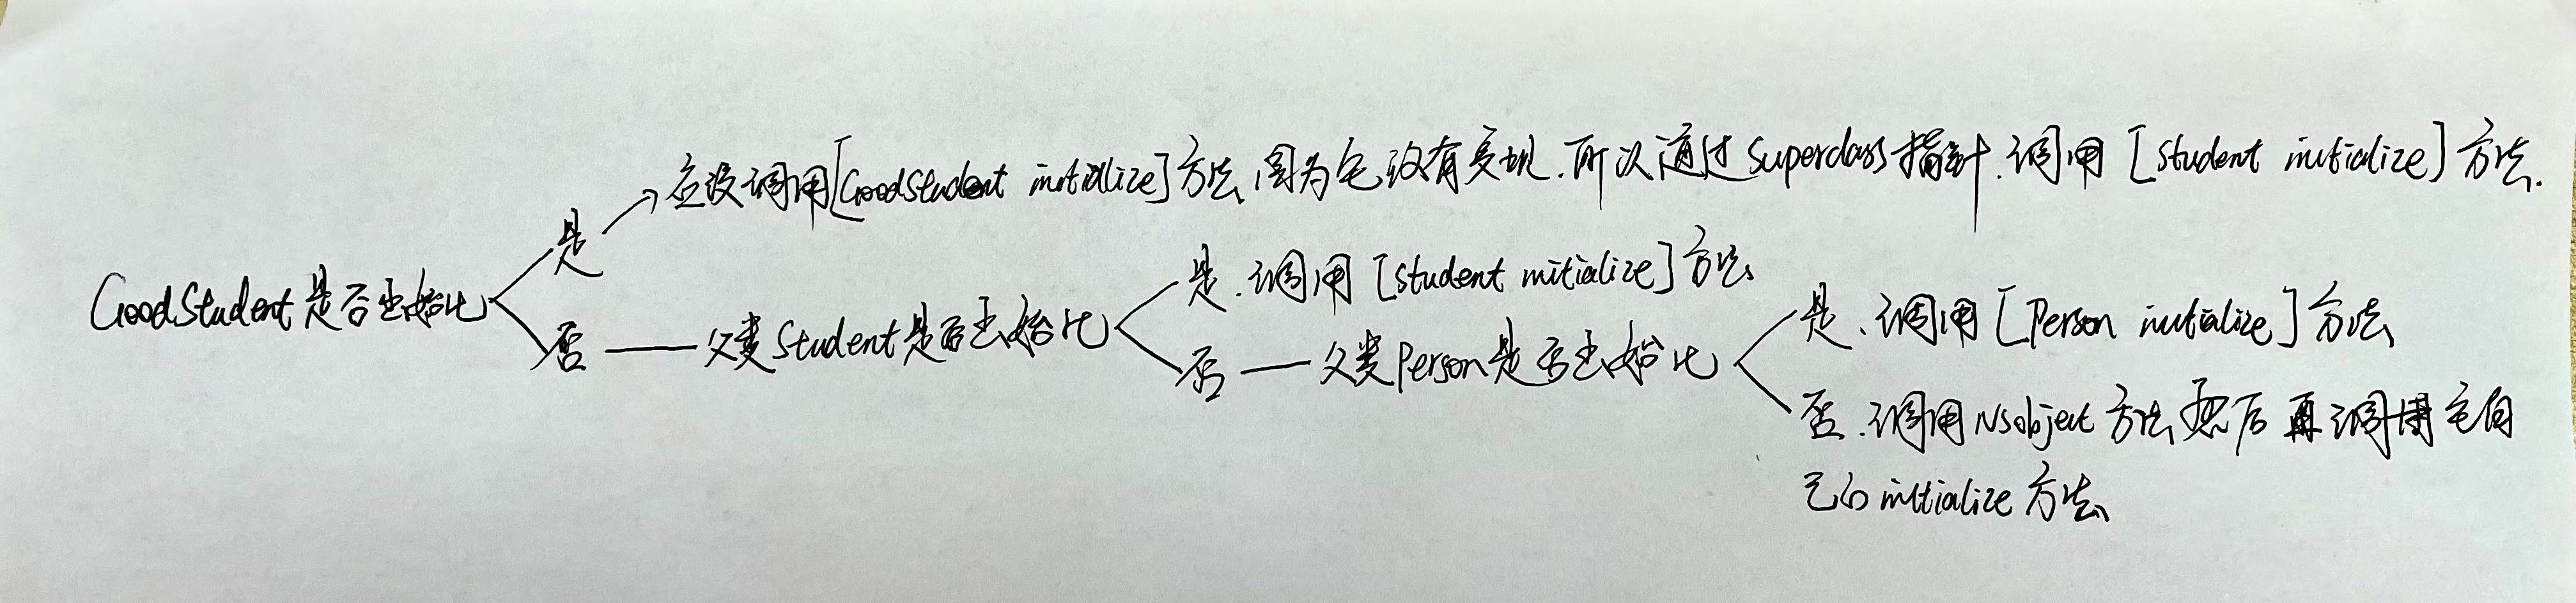 应该调用[GoodStudent initiallize]方法,因为它没有实现.所以通过superclass指针.调用[Student initialize]方法.
是
GoodStudent是否出始化
否
父类Student是否出始化
是.调用[Student initialize]方法
否
父类Person是否出始化
是.调用[Person initialize]方法
否.调用NSobject方法然后再调用它自
己的initialize方法